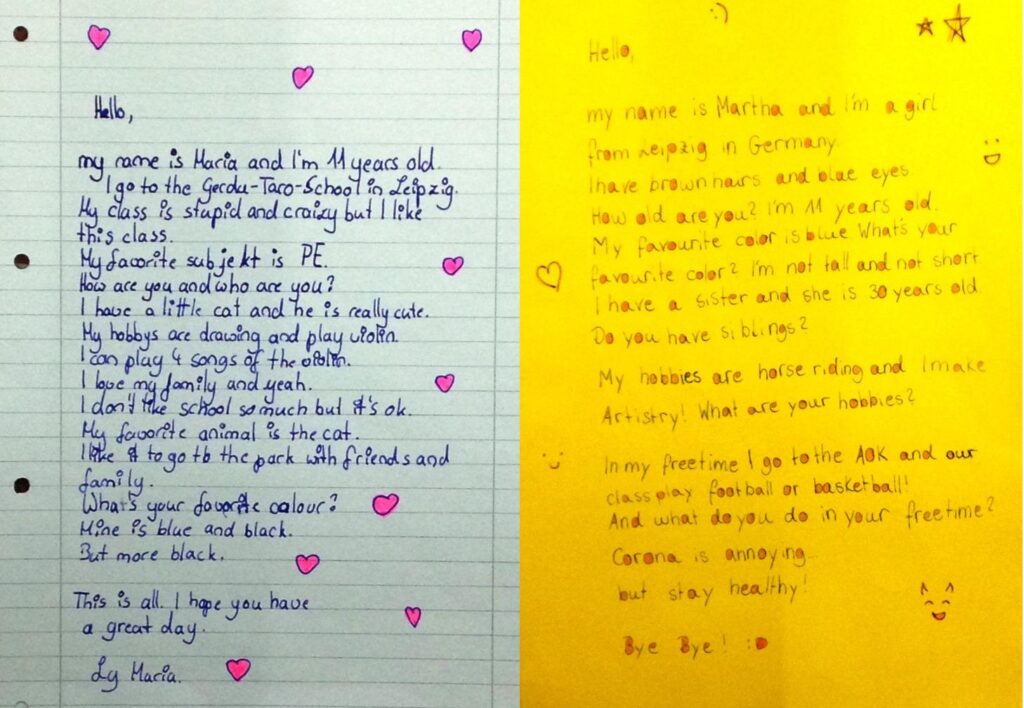 Hello,
my name is Maria and I'm 11 years old.
I go to the Gerdu-Taro-School in Leipzig.
My class is stupid and craizy but I like
this class.
My favorite subjekt is PE.
How are you and who are you?
I have a little cat and he is really cute.
My hobbys are drawing and play violin.
I can play 4 songs of the violin.
I love my family and yeah.
I don't like school so much but it's ok.
My favorite animal is the cat.
I like it to go to the park with friends and
family.
What's your favorite colour?
Mine is blue and black.
But more black.
This is all. I hope you have
a great day.
Ly Maria.
:)
Hello,
my name is Martha and I'm a girl
from Leipzig in Germany.
I have brown hairs and blue eyes
How old are you? I'm 11 years old.
My favourite color is blue What's your
favourite color? I'm not tall and not short
I have a sister and she is 30 years old
Do you have siblings?
My hobbies are horse riding and I make
Artistry! What are your hobbies?
In my freetime I go to the AOK and our
class play football or basketball!
And what do you do in your freetime?
Corona is annoying...
but stay healthy!
Bye Bye! :D